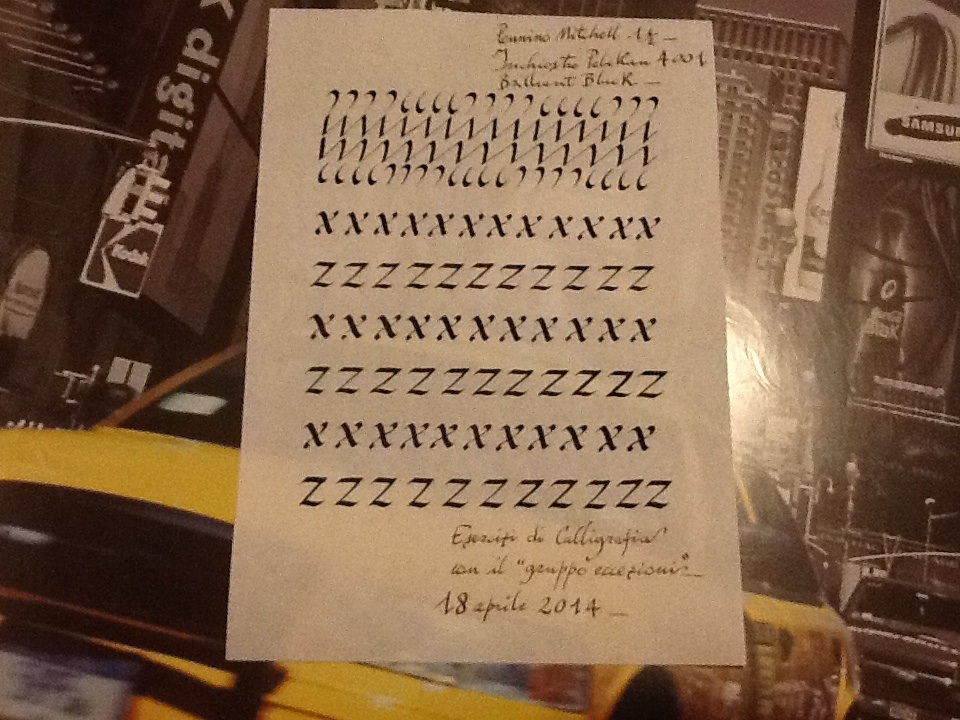 Pennino Mitchell
Inchiostro Pelikan 4001
Brilliant Black
x x x x x x x x x x x x
z z z z z z z z z z z
x x x x x x x x x x x
z z z z z z z z z z z
x x x x x x x x x x x
z z z z z z z z z z z
Esercizi di Calligrafia
con il "gruppo eccezioni"
18 aprile 2014
k digital
Kodak
SAMSU